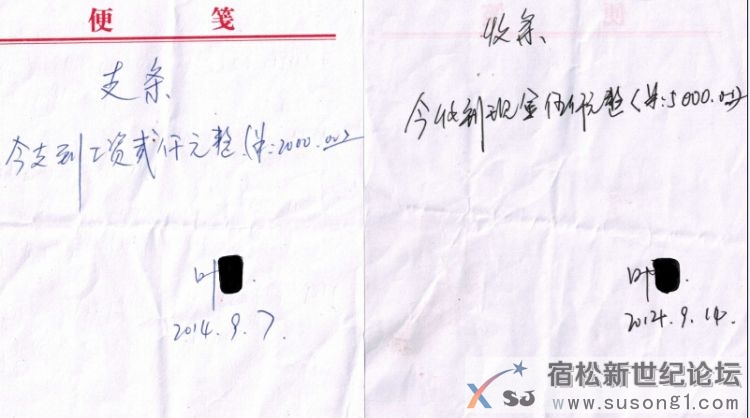 便 笺
支条
今支到工资贰仟元整(¥:2000.00)
叶
2014.9.7.
收条
今收到现金伍仟元整(¥:5000.00)
叶
2014.9.14.
XSJ
宿松新世纪论坛
www.susong1.com